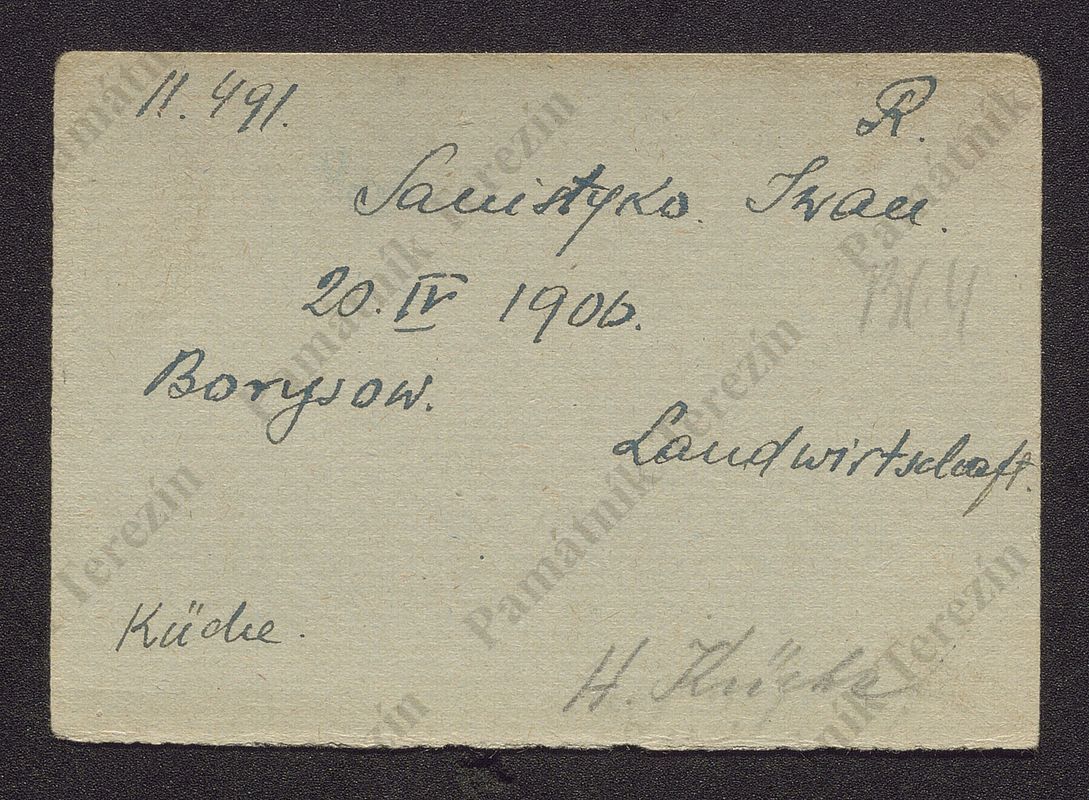 11.491. R.
Sanistyko. Iwan.
20. IV 1906.
1364
Borysow.
Landwirtschaft.
Küche.
H. Küche
Památník Terezín